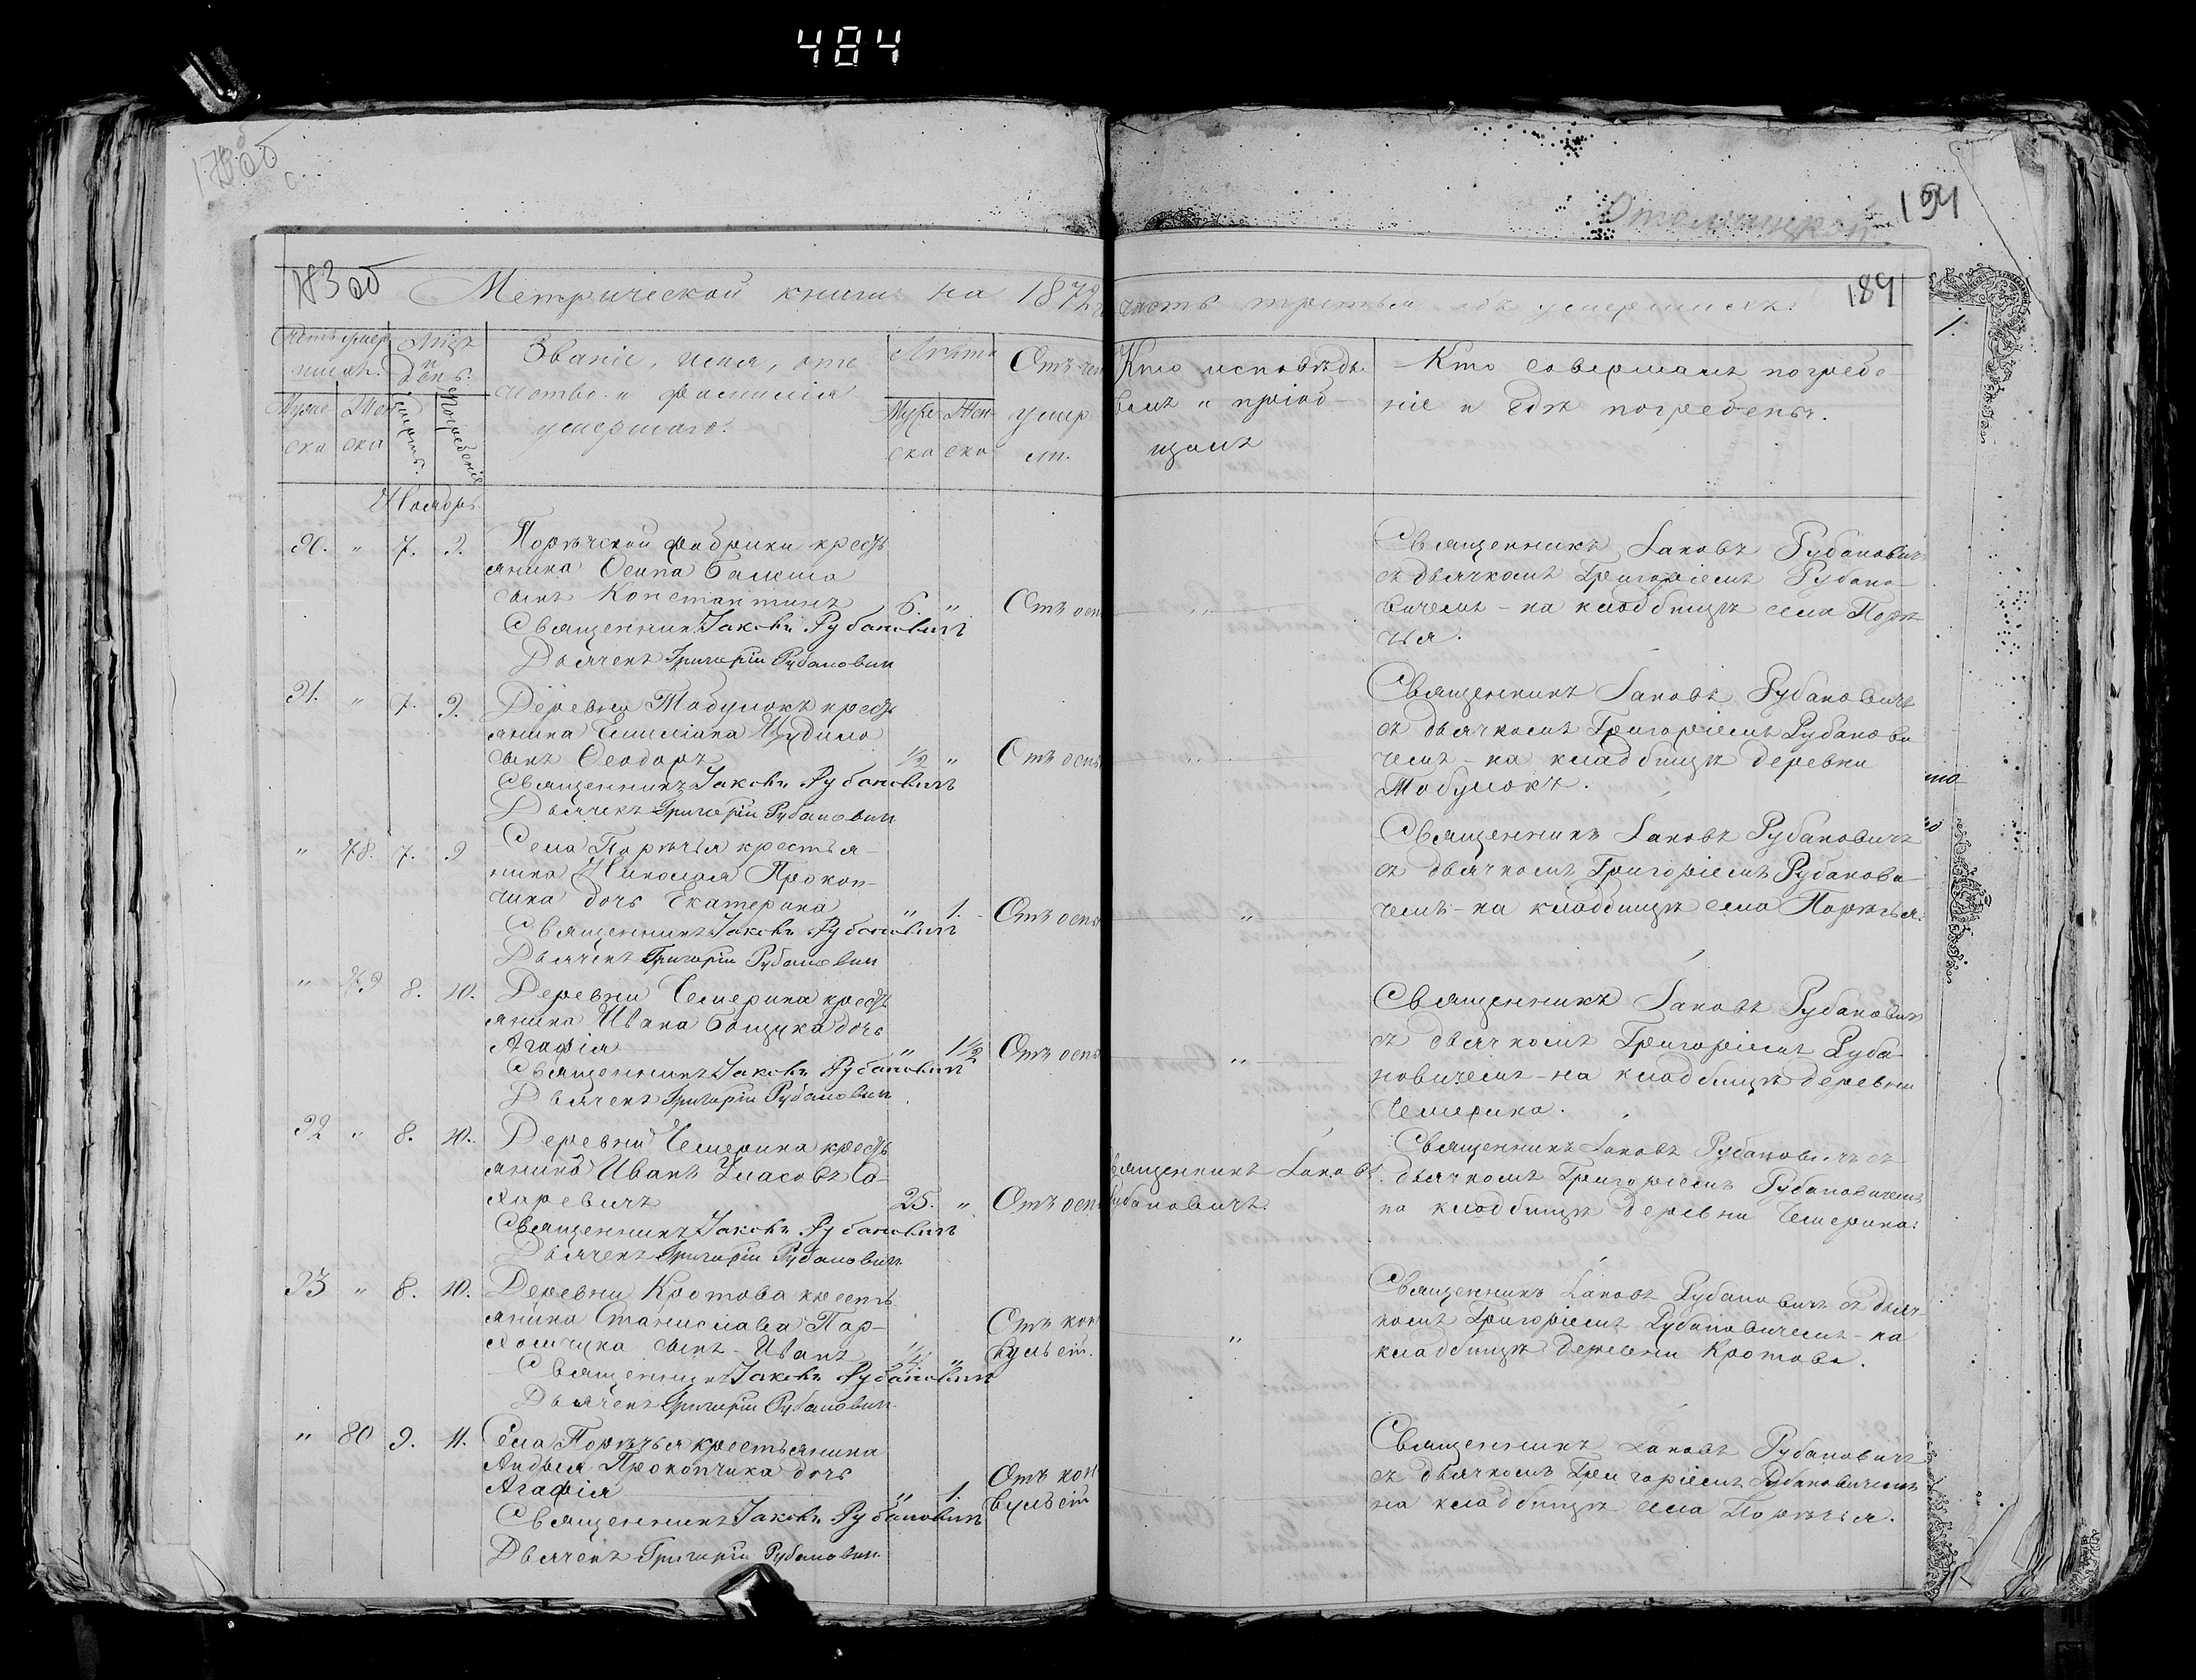 484
194
183 об
189
Метрической книги на 1872 г.
часть третья объ умершихъ.
Счетъ умер
шихъ.
Мѣсц.
и
день.
Званіе, имя, оте
чество и фамилія
умершаго.
Лѣта
Отъ чего
умер
ли.
Муже
ска
Жен
ска
смерть.
погребенія
Муже
ска
Жен
ска
Кто исповѣды
валъ и пріоб-
щалъ
Кто совершалъ погребе-
ніе и гдѣ погребены.
Ноябрь.
90. " 7. 9. Порѣчской фабрики кресть
янина Осипа
сынъ Константинъ 6. " Отъ осп
Священникъ Іаковъ Рубановичъ
Дьячекъ Григорій Рубановичъ
Священникъ Іаковъ Рубановичъ
съ дьячкомъ Григоріемъ Рубано-
вичемъ - на кладбищѣ села Порѣ
чья.
91. " 7. 9. Деревни Табулокъ кресть
янина Емиліана
сынъ Ѳеодоръ 1/2 " Отъ осп
Священникъ Іаковъ Рубановичъ
Дьячекъ Григорій Рубановичъ
Священникъ Іаковъ Рубановичъ
съ дьячкомъ Григоріемъ Рубанови
чемъ - на кладбищѣ деревни
Табулокъ.
" 78. 7. 9 Села Порѣчья крестья-
нина Николая Прокоп-
чика дочь Екатерина " 1. Отъ осп
Священникъ Іаковъ Рубановичъ
Дьячекъ Григорій Рубановичъ
Священникъ Іаковъ Рубановичъ
съ дьячкомъ Григоріемъ Рубанови
чемъ - на кладбищѣ села Порѣчья.
" 79 8. 10. Деревни Чемерина кресть
янина Ивана Бощука дочь
Агафія " 1 1/2 Отъ осп
Священникъ Іаковъ Рубановичъ
Дьячекъ Григорій Рубановичъ
Священникъ Іаковъ Рубановичъ
съ дьячкомъ Григоріемъ Руба-
новичемъ - на кладбищѣ деревни
Чемерина.
92 " 8. 10. Деревни Чемерина кресть
янинъ Иванъ Власовъ
25. " Отъ осп
Священникъ Іаковъ Рубановичъ
Дьячекъ Григорій Рубановичъ
вященникъ Іаковъ
Рубановичъ.
Священникъ Іаковъ Рубановичъ съ
дьячкомъ Григоріемъ Рубановичемъ
на кладбищѣ деревни Чемерина.
93 " 8. 10. Деревни Кротова кресть
янина Станислава Пар-
хомчука сынъ - Иванъ " Отъ кон
вульсій.
Священникъ Іаковъ Рубановичъ
Дьячекъ Григорій Рубановичъ
Священникъ Іаковъ Рубановичъ съ дьяч
комъ Григоріемъ Рубановичемъ - на
кладбищѣ деревни Кротова.
" 80 9. 11. Села Порѣчья крестьянина
Андрея Прокопчика дочь
Агафія " 1. Отъ кон
вульсій
Священникъ Іаковъ Рубановичъ
Дьячекъ Григорій Рубановичъ.
Священникъ Іаковъ Рубановичъ
съ дьячкомъ Григоріемъ Рубановичемъ
на кладбищѣ села Порѣчья.